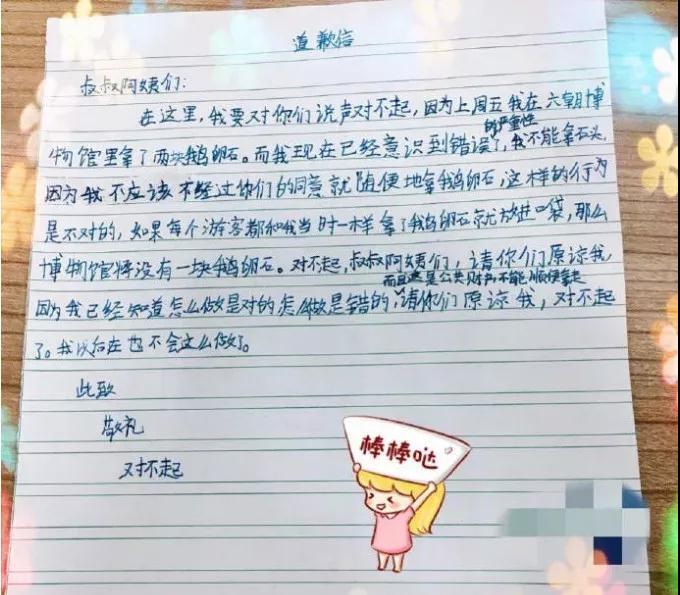 道歉信
叔叔阿姨们:
在这里,我要对你们说声对不起,因为上周五我在六朝博
物馆里拿了两块鹅卵石。而我现在已经意识到错误了,我不能拿石头,
的严重性
因为我不应该不经过你们的同意就随便地拿鹅卵石,这样的行为
是不对的,如果每个游客都和我当时一样拿了鹅卵石就放进口袋,那么
博物馆将没有一块鹅卵石。对不起,叔叔阿姨们,请你们原谅我,
而且这是公共财产不能顺便拿走
因为我已经知道怎么做是对的怎么做是错的,请你们原谅我,对不起
了。我以后在也不会这么做了。
此致
敬礼
对不起
棒棒哒